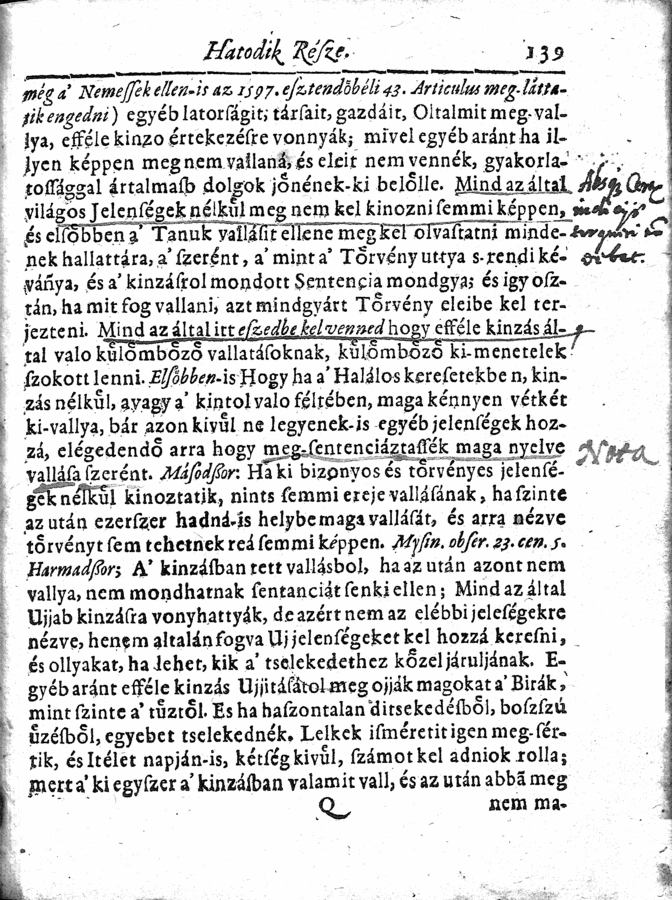 Hatodik Réſze. 139
még a' Nemeſſek ellen-is az 1597. eſztendőbéli 43. Articulus meg-látta-
tik engedni) egyéb latorſágit; társait, gazdáit, Oltalmit meg-val-
lya, efféle kinzo értekezéſre vonnyák; mivel egyéb aránt ha il-
lyen képpen meg nem vallaná, és eleit nem vennék, gyakorla-
toſſággal ártalmaſb dolgok jőnének-ki belőlle. Mind az által
világos Jelenſégek nélkűl meg nem kel kinozni ſemmi képpen,
és elſőbben a' Tanuk valláſit ellene meg kel olvaſtatni minde-
nek hallattára, a' ſzerént, a' mint a' Tőrvény uttya s-rendi ké-
váñya, és a' kinzáſrol mondott Sentencia mondgya; és igy oſz-
tán, ha mit fog vallani, azt mindgyárt Tőrvény eleibe kel ter-
jezteni. Mind az által itt eſzedbe kel venned hogy efféle kinzás ál-
tal valo kűlőmbőző vallatáſoknak, kűlőmbőző ki-menetelek
ſzokott lenni. Elſőbben-is Hogy ha a' Halálos kereſetekbe n, kin-
zás nélkűl, avagy a' kintol valo féltében, maga kénnyen vétkét
ki-vallya, bár azon kivűl ne legyenek-is egyéb jelenſégek hoz-
zá, elégedendő arra hogy meg-ſentenciáztaſſék maga nyelve
valláſa ſzerént. Máſodßor: Ha ki bizonyos és tőrvényes jelenſé-
gek nélkűl kinoztatik, nints ſemmi ereje valláſának, ha ſzinte
az után ezerſzer hadná-is helybe maga valláſát, és arra nézve
tőrvényt ſem tehetnek reá ſemmi képpen. Myſin. obſer. 23. cen. 5.
Harmadßor; A' kinzáſban tett vallásbol, ha az után azont nem
vallya, nem mondhatnak ſentanciát ſenki ellen; Mind az által
Ujjab kinzáſra vonyhattyák, de azért nem az elébbi jeleſégekre
nézve, henem altalán fogva Uj jelenſégeket kel hozzá kereſni,
és ollyakat, ha lehet, kik a' tselekedethez kőzel járuljának. E-
gyéb aránt efféle kinzás Ujjitáſátol meg ojják magokat a' Birák,
mint ſzinte a' tűztől. Es ha haſzontalan ditsekedéſből, boſzſzú
űzéſből, egyebet tselekednék. Lelkek iſméretit igen meg-ſér-
tik, és Itélet napján-is, kétſég kivűl, ſzámot kel adniok rolla;
mert a' ki egyſzer a' kinzáſban valamit vall, és az után abbā meg
Q nem ma-
Nota